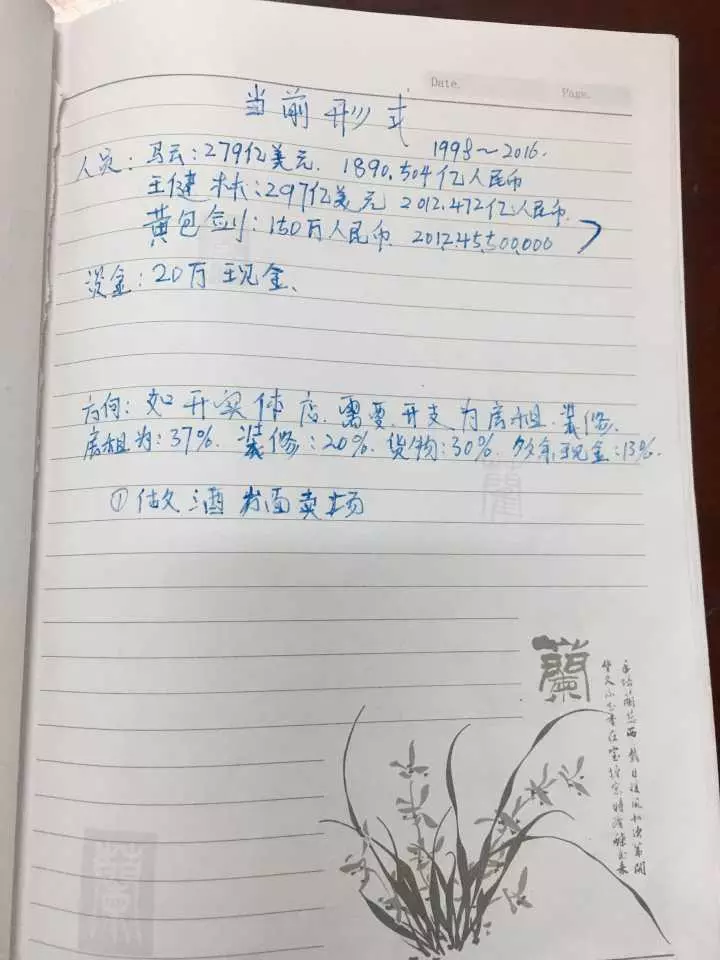 Date.
Page.
当前形式
1998～2016.
人员：马云：279亿美元. 1890.504亿人民币
王健林：297亿美元 2012.472亿人民币.
黄包剑：150万人民币 201245,500,000
资金：20万现金、
方向：如开实体店.需要.开支为房租.装修.
房租为：37%. 装修：20%. 货物：30%. 多余现金：13%.
①做酒当面卖场
蘭
蘭
蘭